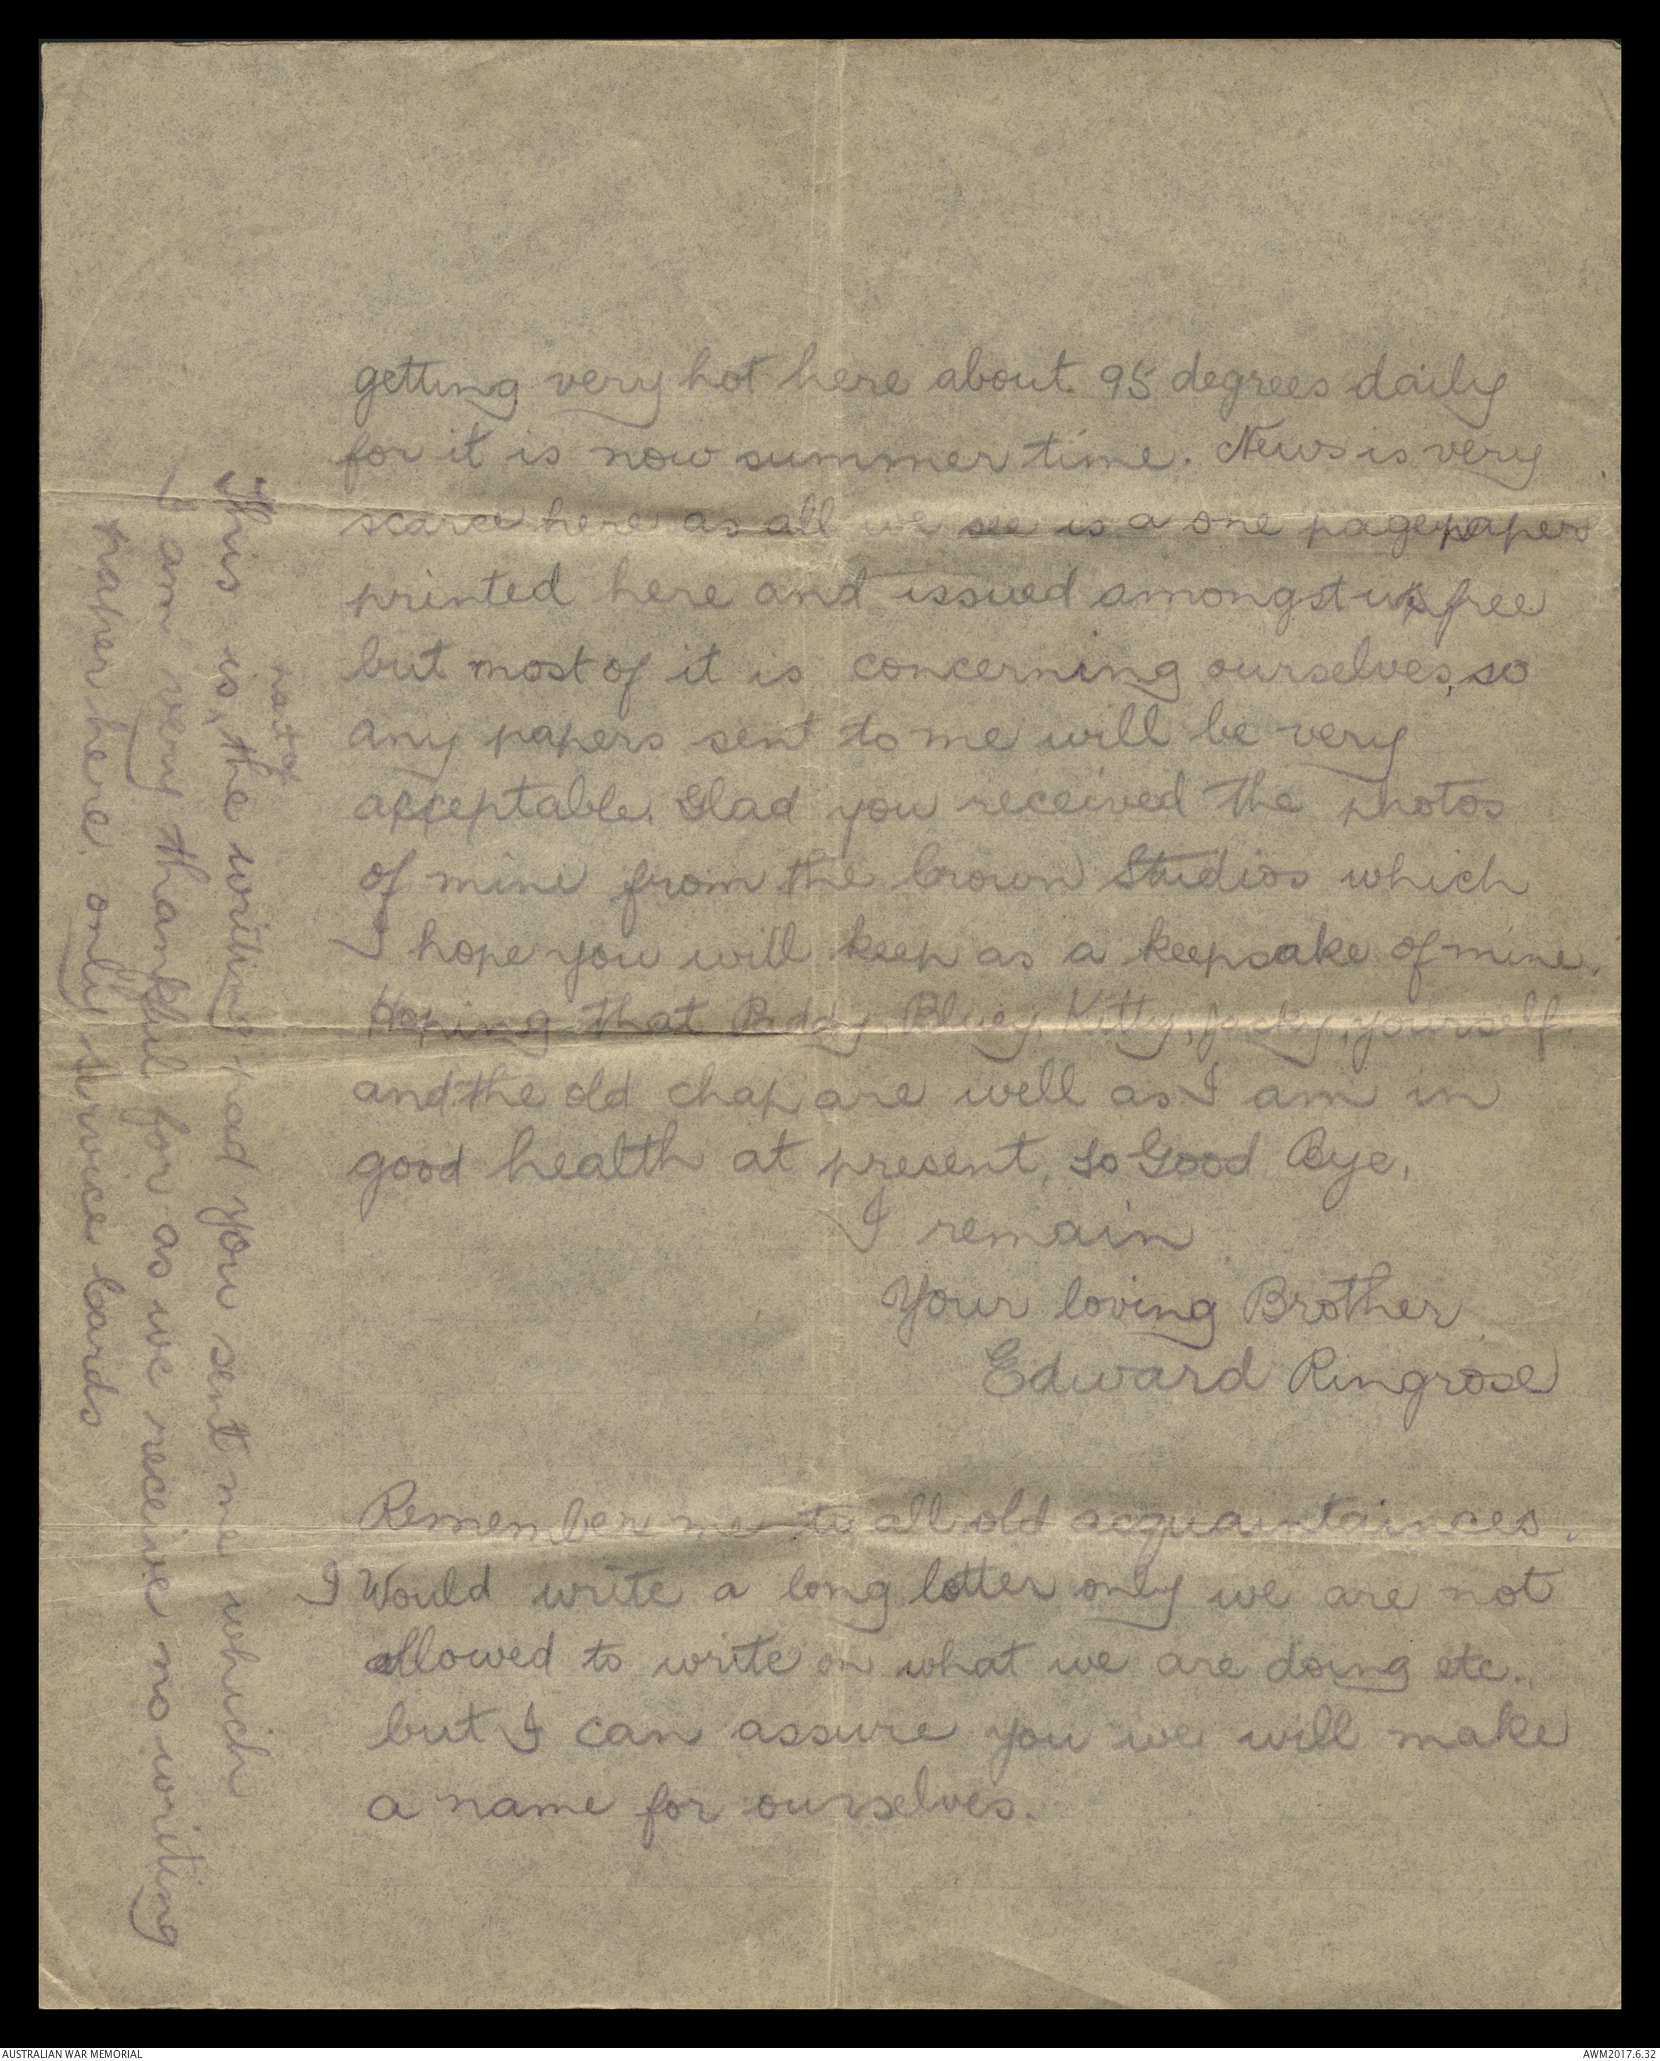 getting very hot here about 95 degrees daily
for it is now summer time. News is very
scarce here as all we see is a one page paper
printed here and issued amongst us free
but most of it is concerning ourselves, so
any papers sent to me will be very
acceptable. Glad you received the photos
of mine from the Crown Studios which
I hope you will keep as a keepsake of mine.
Hoping that Paddy, Bluey, Kitty, Jacky, yourself
and the old chap are well as I am in
good health at present, so Good Bye,
I remain
Your loving Brother
Edward Ringrose
Remember me to all old acquaintainces.
I Would write a long letter only we are not
allowed to write on what we are doing etc.,
but I can assure you we will make
a name for ourselves.
rest of
This is, the writing pad you sent me which
I am very thankful for as we receive no writing
paper here only service cards
AUSTRALIAN WAR MEMORIAL
AWM2017.6.32